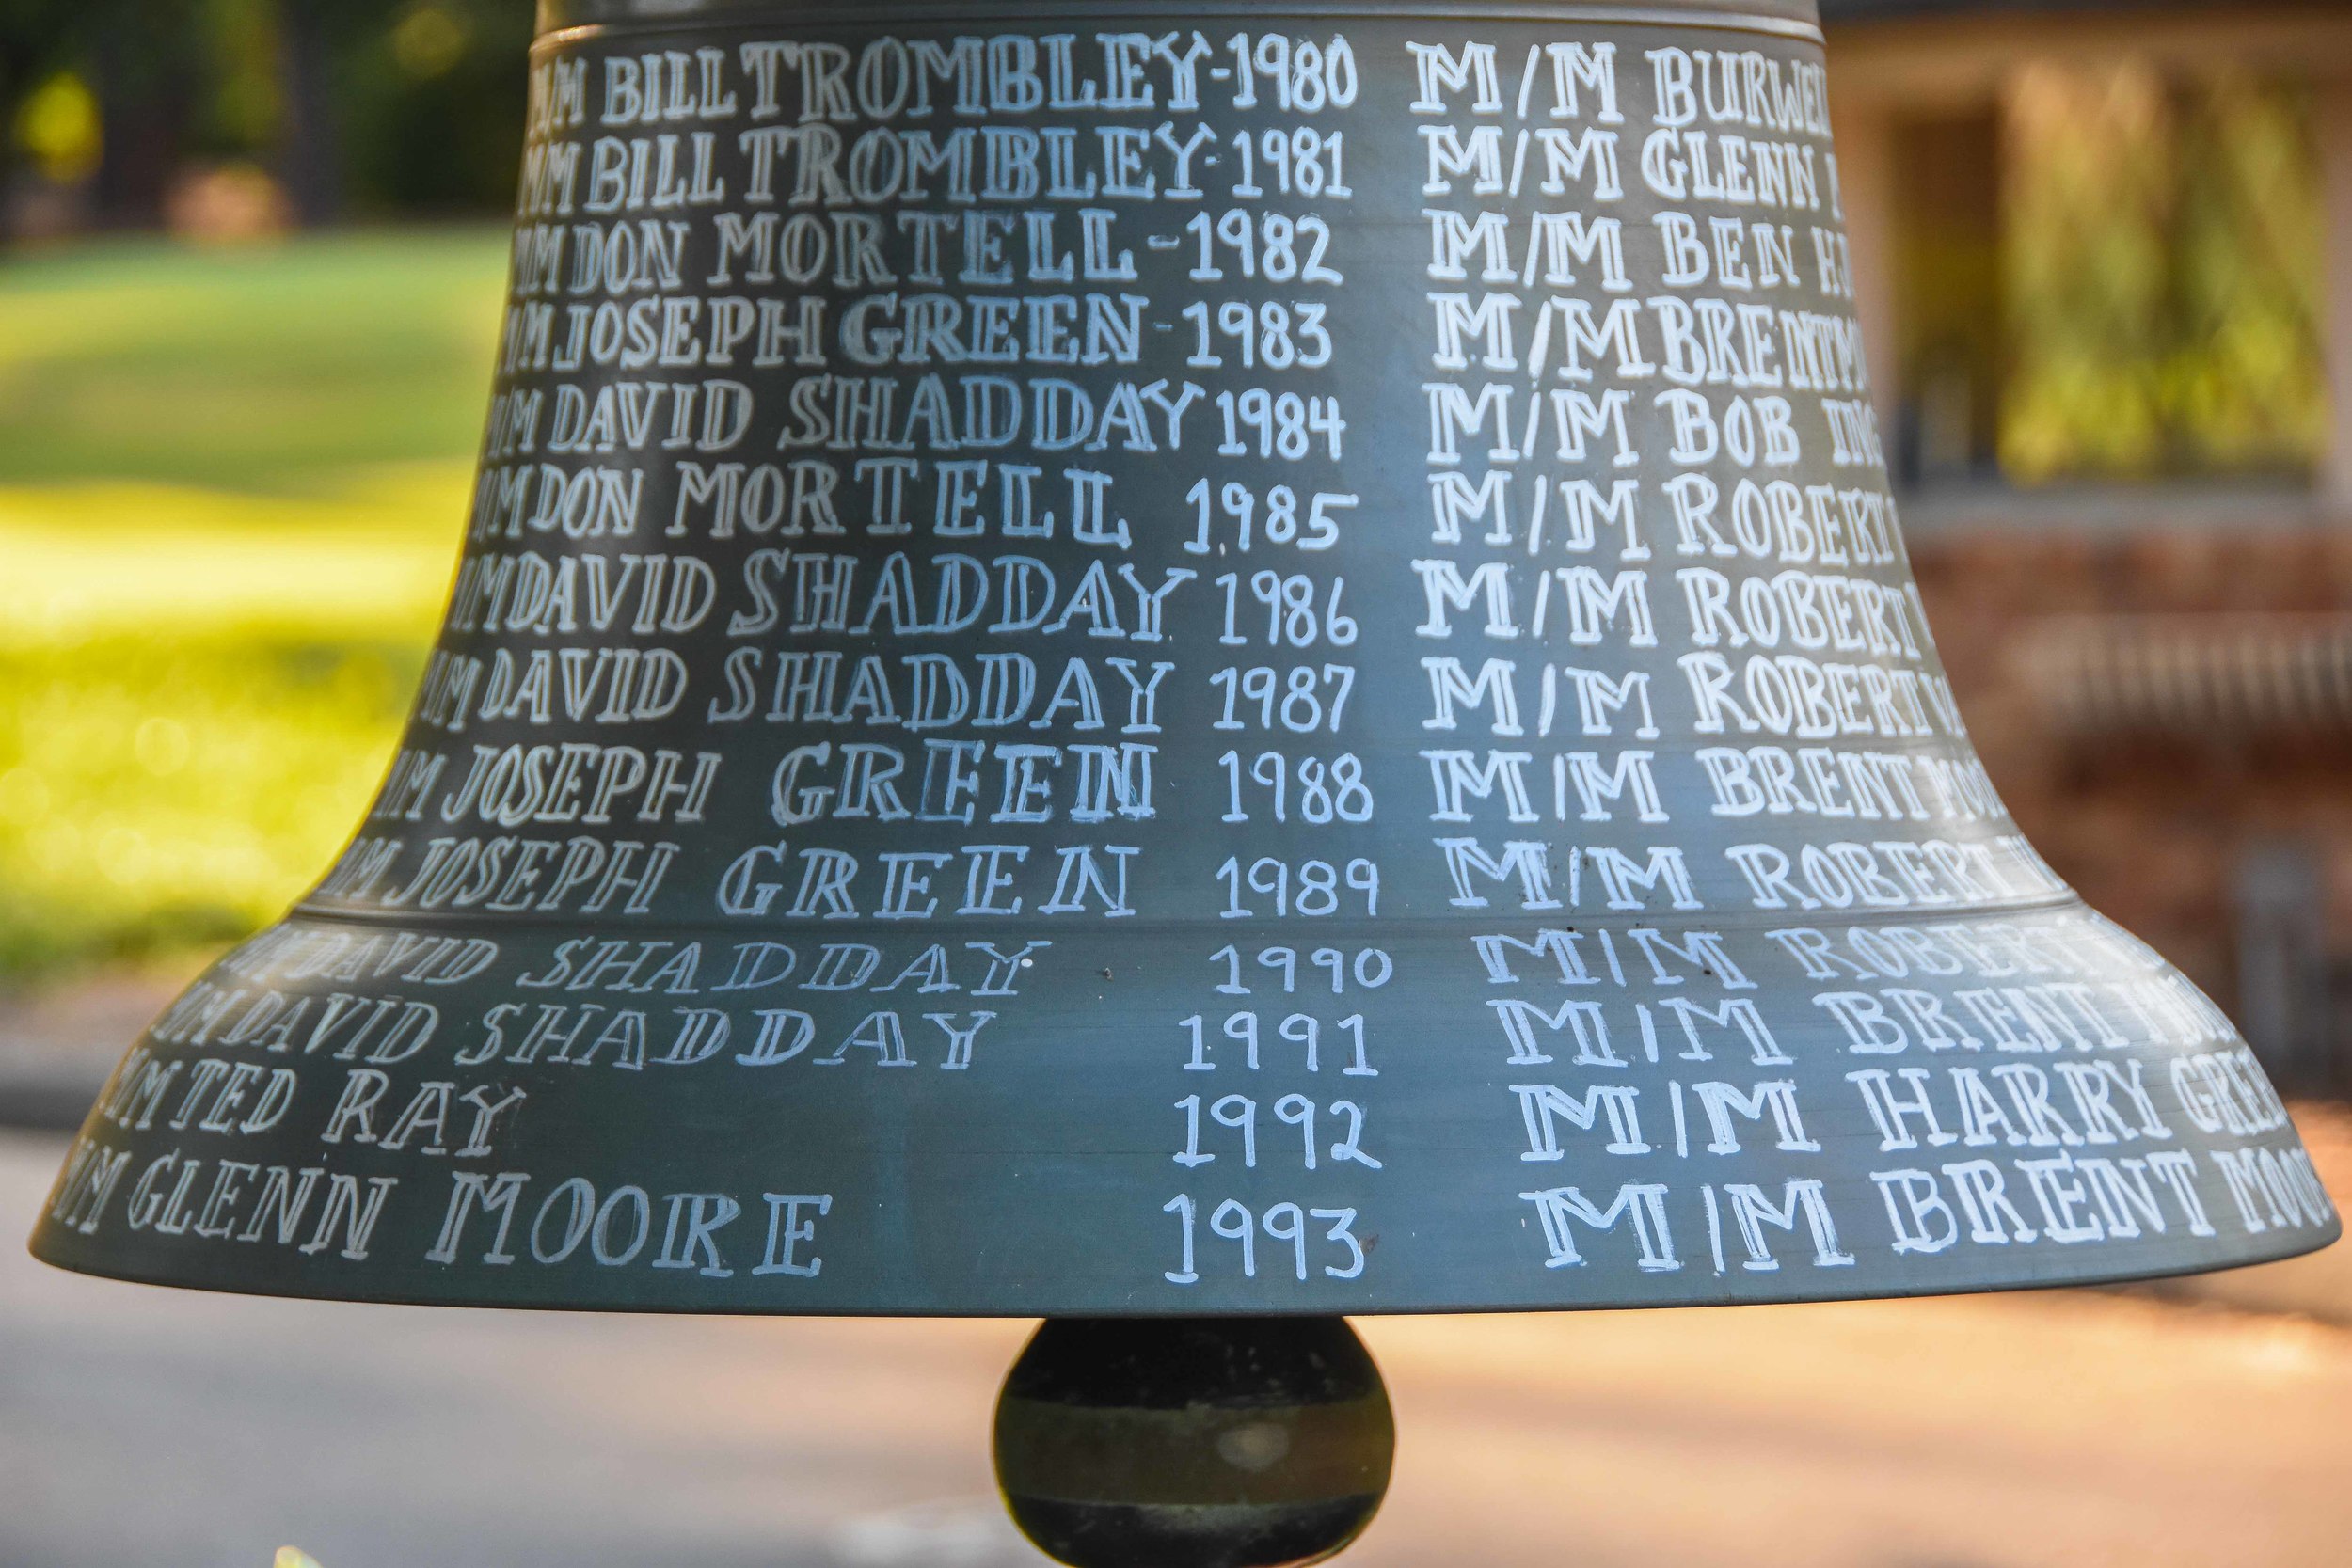 M/M BILL TROMBLEY-1980 M/M BURWELL
M/M BILL TROMBLEY-1981 M/M GLENN
M/M DON MORTELL-1982 M/M BEN
M/M JOSEPH GREEN-1983 M/M BRENT
M/M DAVID SHADDAY 1984 M/M BOB
M/M DON MORTELL 1985 M/M ROBERT
M/M DAVID SHADDAY 1986 M/M ROBERT
M/M DAVID SHADDAY 1987 M/M ROBERT
M/M JOSEPH GREEN 1988 M/M BRENT MOO
M/M JOSEPH GREEN 1989 M/M ROBERT
M/M DAVID SHADDAY 1990 M/M ROBERT
M/M DAVID SHADDAY 1991 M/M BRENT
M/M TED RAY 1992 M/M HARRY GREE
M/M GLENN MOORE 1993 M/M BRENT MOO